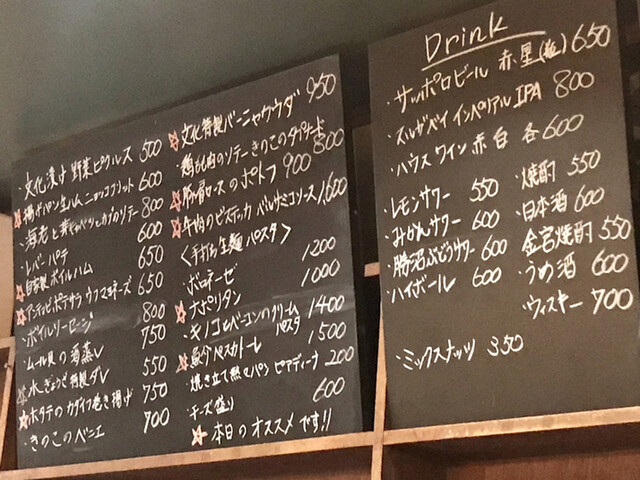 文化漬け 野菜ピクルス 500
☆揚げパン生ハム 600
・海老と 800
・レバーパテ 600
☆自家製 ボイルハム 650
☆アンチョビポテサラ ウフマヨネーズ 650
・ボイルソーセージ 800
・ムール貝の酒蒸し 750
☆水ぎょうざ 特製ダレ 550
☆ホタテのカダイフ巻き揚げ 750
・きのこのベニエ 700
☆文化特製バーニャカウダ 950
・鶏もも肉のソテーきのこのタプナード 800
☆豚肩ロースのポトフ 900
☆牛肉のビステッカ バルサミコソース 1,600
<手打ち生麺 パスタ>
・ボロネーゼ 1200
☆ナポリタン 1000
・キノコとベーコンのクリームパスタ 1400
☆魚介ペスカトーレ 1500
・焼き立て熱々パン ピアディーナ 200
・チーズ盛り 600
☆本日のオススメです!!
Drink
・サッポロビール 赤星(瓶) 650
インペリアル IPA 800
・ハウスワイン 赤 白 各600
・レモンサワー 550
・みかんサワー 600
・勝沼ぶどうサワー 600
・ハイボール 600
・焼酎 550
・日本酒 600
・金宮焼酎 550
・うめ酒 600
・ウィスキー 700
・ミックスナッツ 350